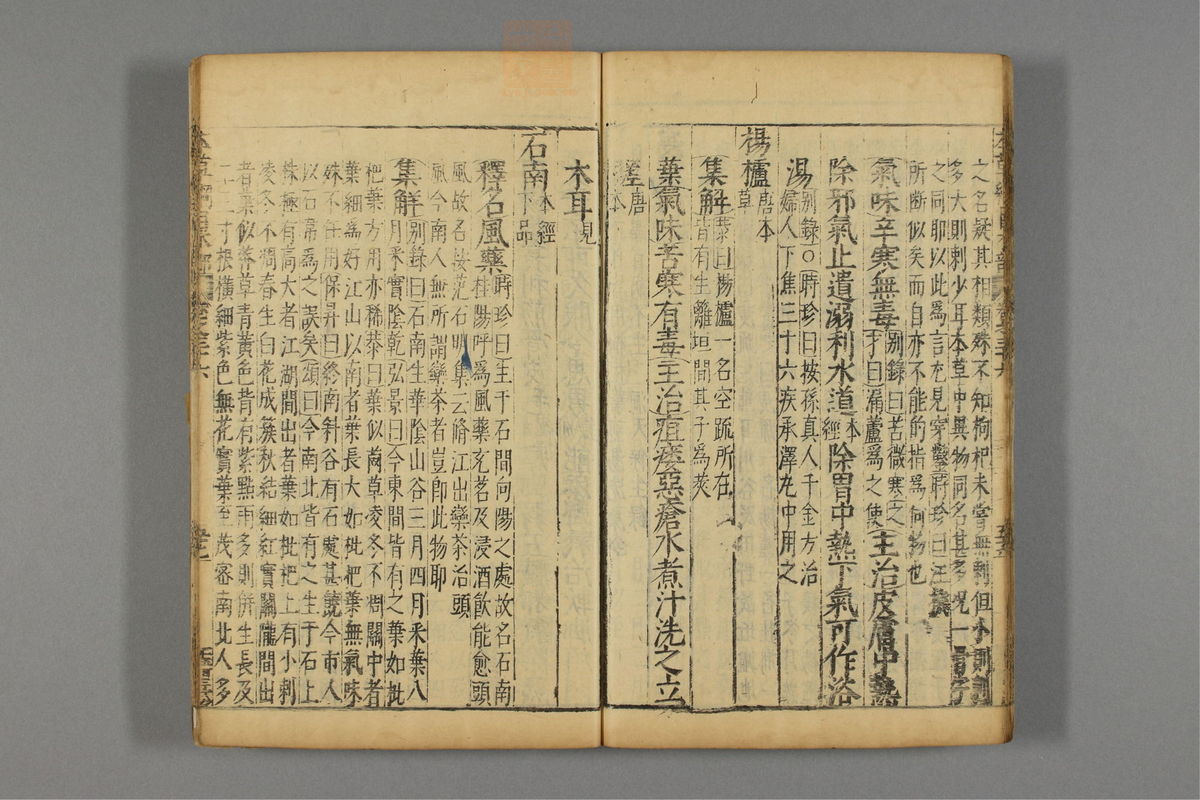 之名疑其相類殊不知枸杞未嘗無刺但小則刺
多大則刺少耳本草中異物同名甚多況一
之同耶以此為言尤見穿鑿時珍曰汪
所斷似矣而自亦不能的指為何物也
氣味辛寒無毒別錄曰苦微寒之才曰漏蘆為之使主治皮膚中熱
除邪氣止遺溺利水道本經除胃中熱下氣可作浴
湯別錄○時珍曰按孫真人千金方治婦人下焦三十六疾承澤丸中用之
楊櫨唐本草
集解恭曰楊櫨一名空疏所在皆有生籬垣間其子為莢
葉氣味苦寒有毒主治疽瘻惡瘡水煮汁洗之立
唐本
木耳見
石南本經下品
釋名風藥時珍曰生于石間向陽之處故名石南
桂陽呼為風藥充茗及浸酒飲能愈頭
風故名按范石明集云脩江出欒茶治頭
風今南人無所謂欒茶者豈即此物耶
集解別錄曰石南生華陰山谷三月四月采葉八
月采實陰乾弘景曰今東間皆有之葉如枇
杷葉方用亦稀恭曰葉似䒽草凌冬不凋關中者
葉細為好江山以南者葉長大如枇杷葉無氣味
殊不任用保昇曰終南斜谷有石處甚饒今市人
以石韋為之誤矣頌曰今南北皆有之生于石上
株極有高大者江湖間出者葉如枇杷上有小刺
凌冬不凋春生白花成簇秋結細紅實關隴間出
者葉似莽草青黃色背有紫點雨多則併生長及
二三寸根橫細紫色無花實葉至茂密南北人多